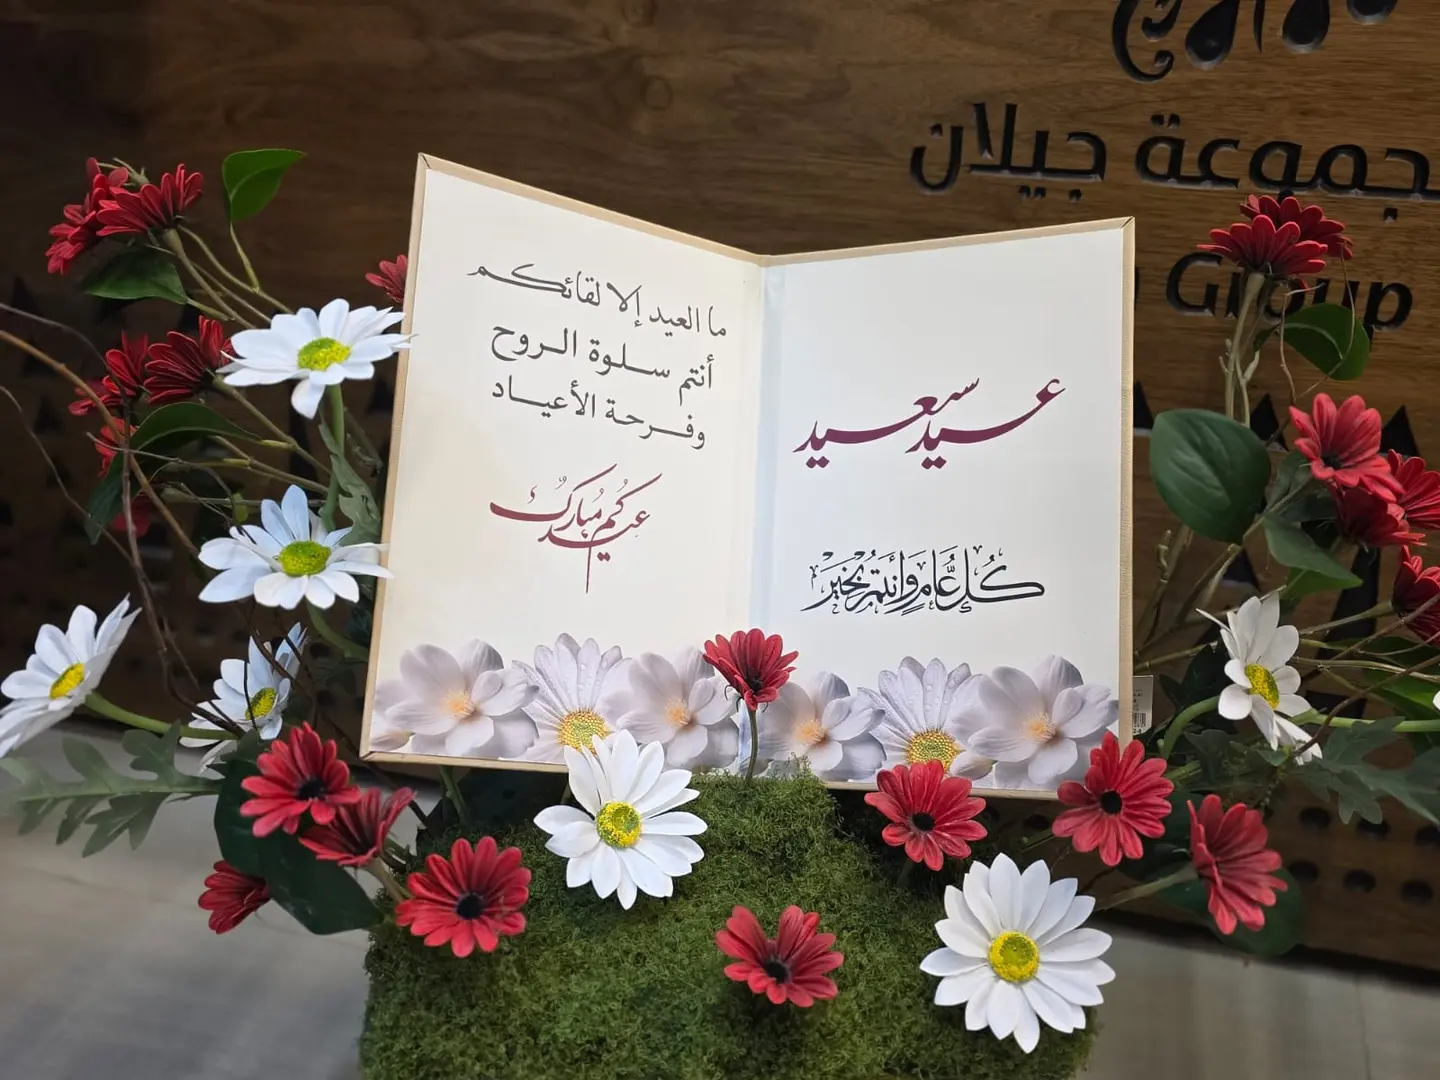 مجموعة جيلان
Group
عيد سعيد
كُلُّ عَامٍ وَأَنتُمْ بِخَيْرٍ
ما العيد إلا لقائكم
أنتم سلوة الروح
وفرحة الأعياد
عيدكم مبارك